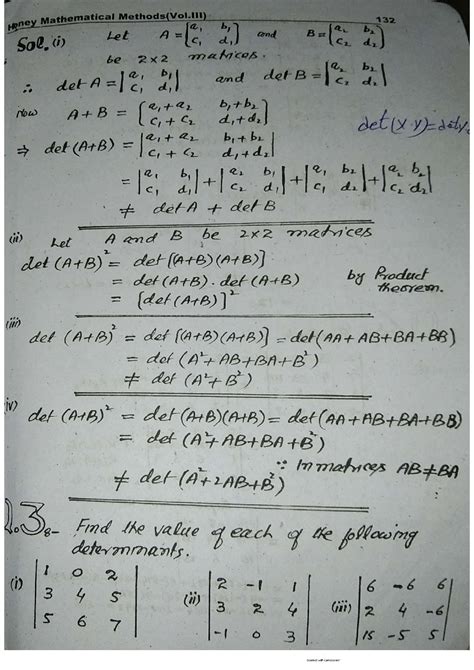 Honey Mathematical Methods(Vol.III) 132
Sol. (i) Let A = [a₁ b₁; c₁ d₁] and B = [a₂ b₂; c₂ d₂]
be 2×2 matrices.
∴ det A = |a₁ b₁; c₁ d₁| and det B = |a₂ b₂; c₂ d₂|
Now A+B = [a₁+a₂ b₁+b₂; c₁+c₂ d₁+d₂]
det(x·y)=det
⇒ det(A+B) = |a₁+a₂ b₁+b₂; c₁+c₂ d₁+d₂|
= |a₁ b₁; c₁ d₁| + |a₂ b₁; c₂ d₁| + |a₁ b₂; c₁ d₂| + |a₂ b₂; c₂ d₂|
≠ det A + det B
(ii) Let A and B be 2×2 matrices
det(A+B)² = det[(A+B)(A+B)]
= det(A+B). det(A+B) by Product
= [det(A+B)]² theorem.
(iii) det (A+B)² = det [(A+B)(A+B)] = det(AA+AB+BA+BB)
= det (A²+AB+BA+B²)
≠ det (A²+B²)
iv) det (A+B)² = det(A+B)(A+B) = det(AA+AB+BA+BB)
= det (A²+AB+BA+B²)
∵ In matrices AB≠BA
≠ det(A²+2AB+B²)
Q.3 8- Find the value of each of the following
determinants.
(i) |1 0 2; 3 4 5; 5 6 7| (ii) |2 -1 1; 3 2 4; -1 0 3| (iii) |6 -6 6; 2 4 -6; 15 -5 5|